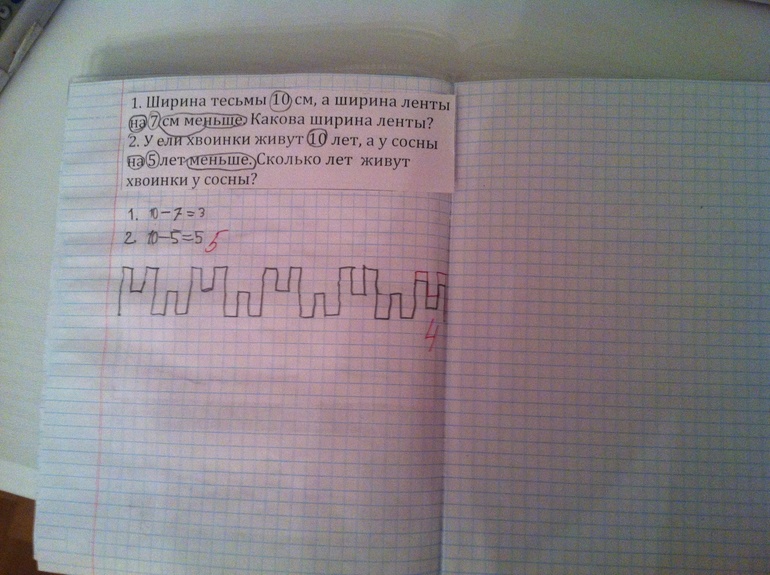 1. Ширина тесьмы 10 см, а ширина ленты
на 7 см меньше. Какова ширина ленты?
2. У ели хвоинки живут 10 лет, а у сосны
на 5 лет меньше. Сколько лет живут
хвоинки у сосны?
1. 10-7=3
2 10-5=5 5
4